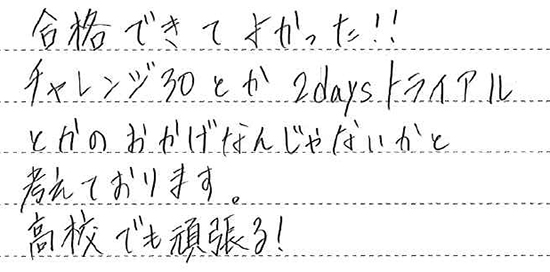 合格できてよかった!!
チャレンジ30とか2daysトライアル
とかのおかげなんじゃないかと
考えております。
高校でも頑張る!